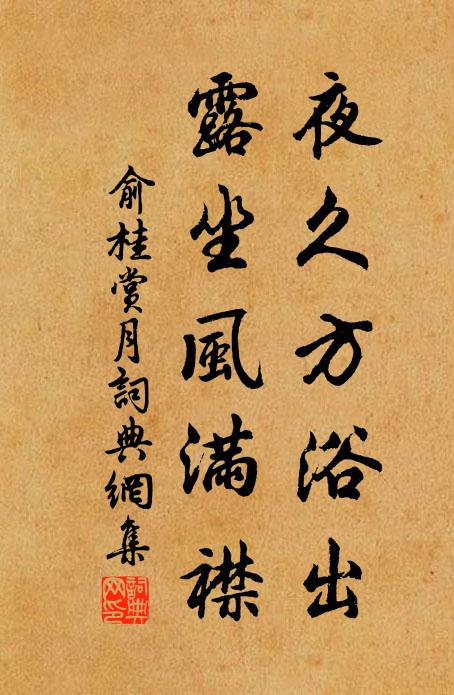 夜久方浴出
露坐風滿襟
俞桂賞月詞典網集
詞典网印